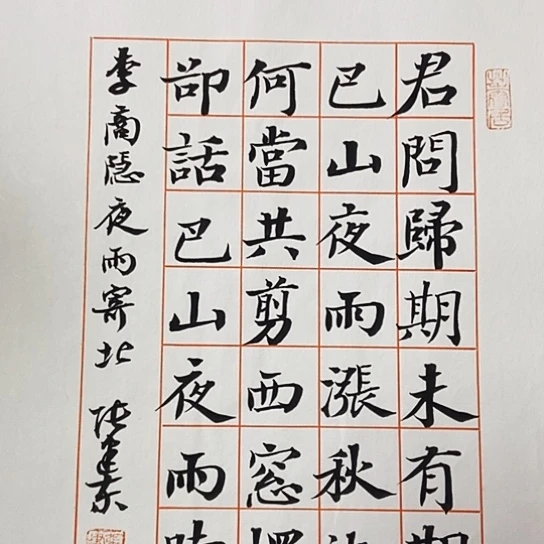 君問歸期未有期
巴山夜雨漲秋
何當共剪西窓
卻話巴山夜雨時
李商隱夜雨寄北